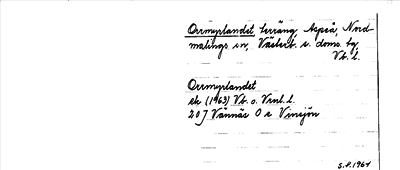 Orrmyrlandet terräng, Aspeå, Nord-
malings sn, Västerb. s. doms. tg,
Vb. l.
Orrmyrlandet
ek (1963) Vb. o. Vrnl. l.
20 J Vännäs O e Vinsjön
S.P. 1964